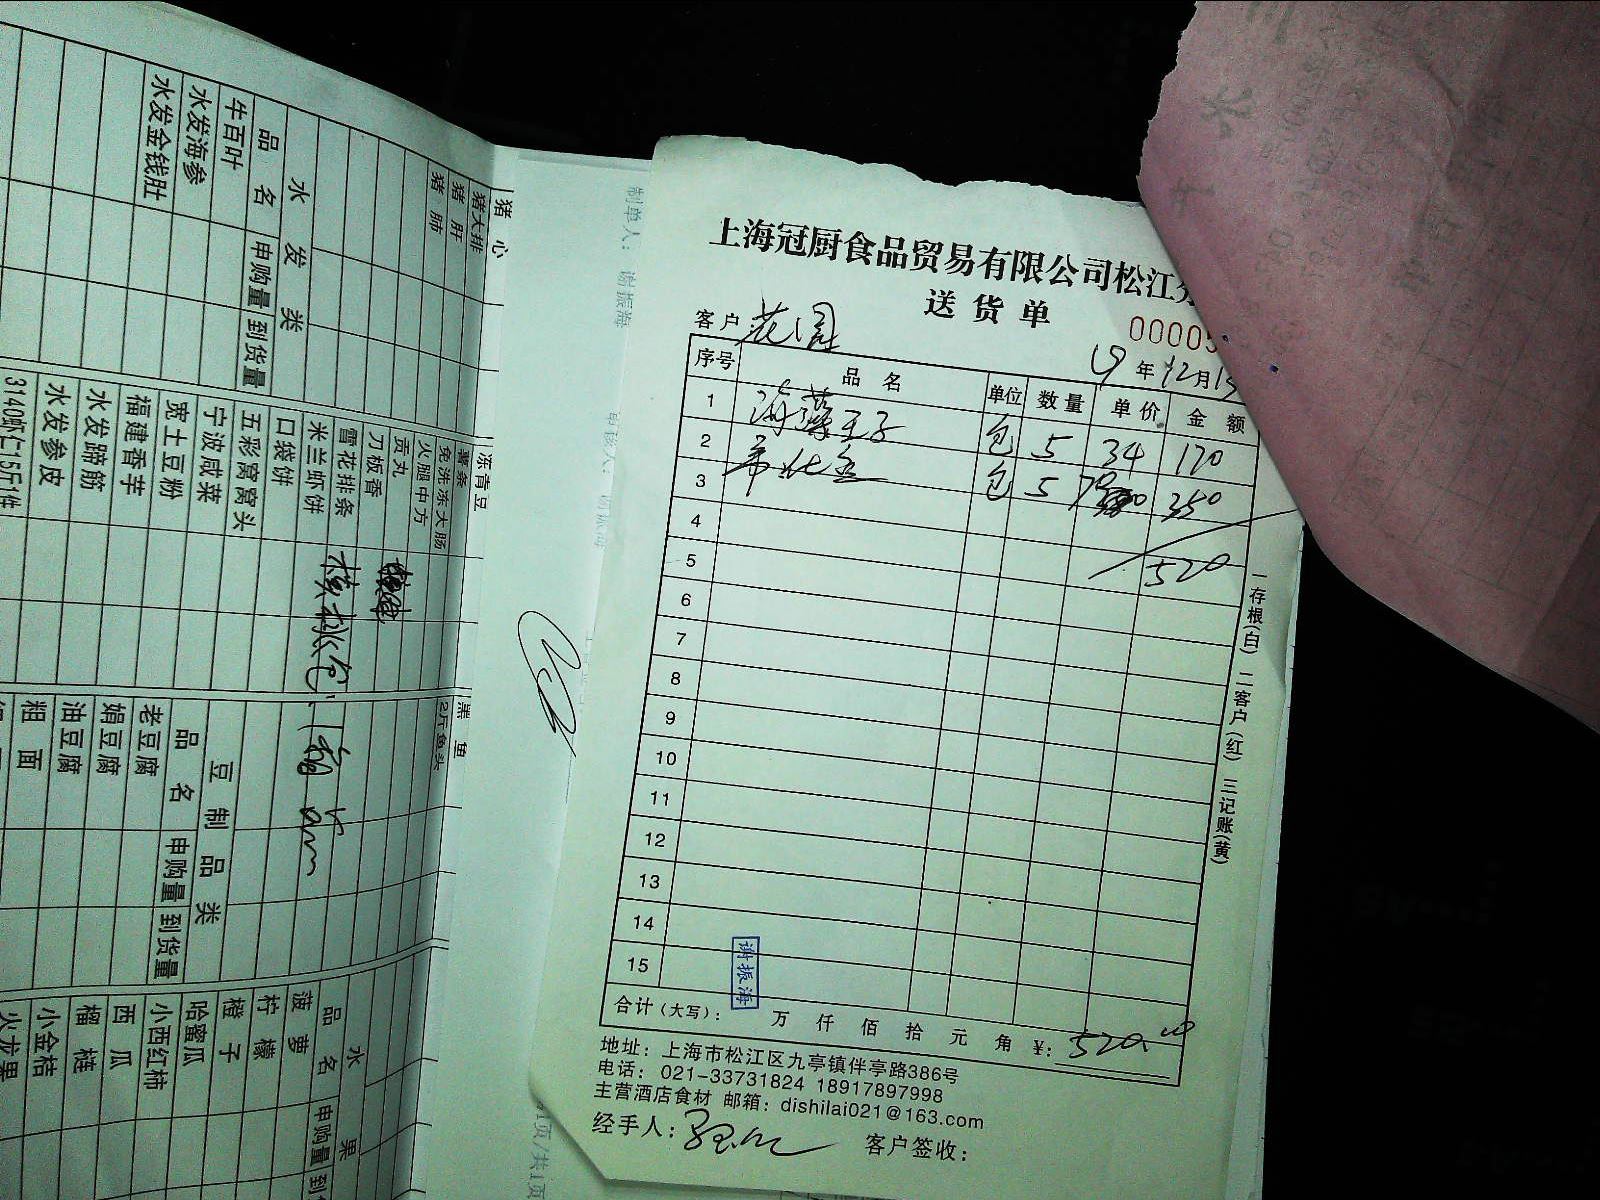 水 发 类
品 名 申购量 到货量
牛百叶
水发海参
水发金钱肚
猪 心
猪大排
猪 肝
猪 肺
冻青豆
薯条
免洗冻大肠
火腿中方
贡丸
刀板香
雪花排条
米兰虾饼
口袋饼
五彩窝窝头
宁波咸菜
宽土豆粉
福建香芋
水发蹄筋
水发参皮
3140虾仁15斤1件
黑 鱼
2斤鱼头
豆 制 品 类
品 名 申购量 到货量
老豆腐
娟豆腐
油豆腐
粗 面
水 果
品 名 申购量
菠 萝
柠 檬
橙 子
哈蜜瓜
小西红柿
西 瓜
榴 梿
小金桔
火龙果
制单人: 谢振海
上海冠厨食品贸易有限公司松江
送 货 单
00005
客户 花园
19 年 12 月
序号 品 名 单位 数量 单价 金 额
1 包 5 34 170
2 包 5 350
3
4
5 520
6
7
8
9
10
11
12
13
14
15
谢振海
合计(大写): 万 仟 佰 拾 元 角 ¥: 520.00
地址: 上海市松江区九亭镇伴亭路386号
电话: 021-33731824 18917897998
主营酒店食材 邮箱: dishilai021@163.com
经手人: 客户签收:
一存根(白) 二客户(红) 三记账(黄)